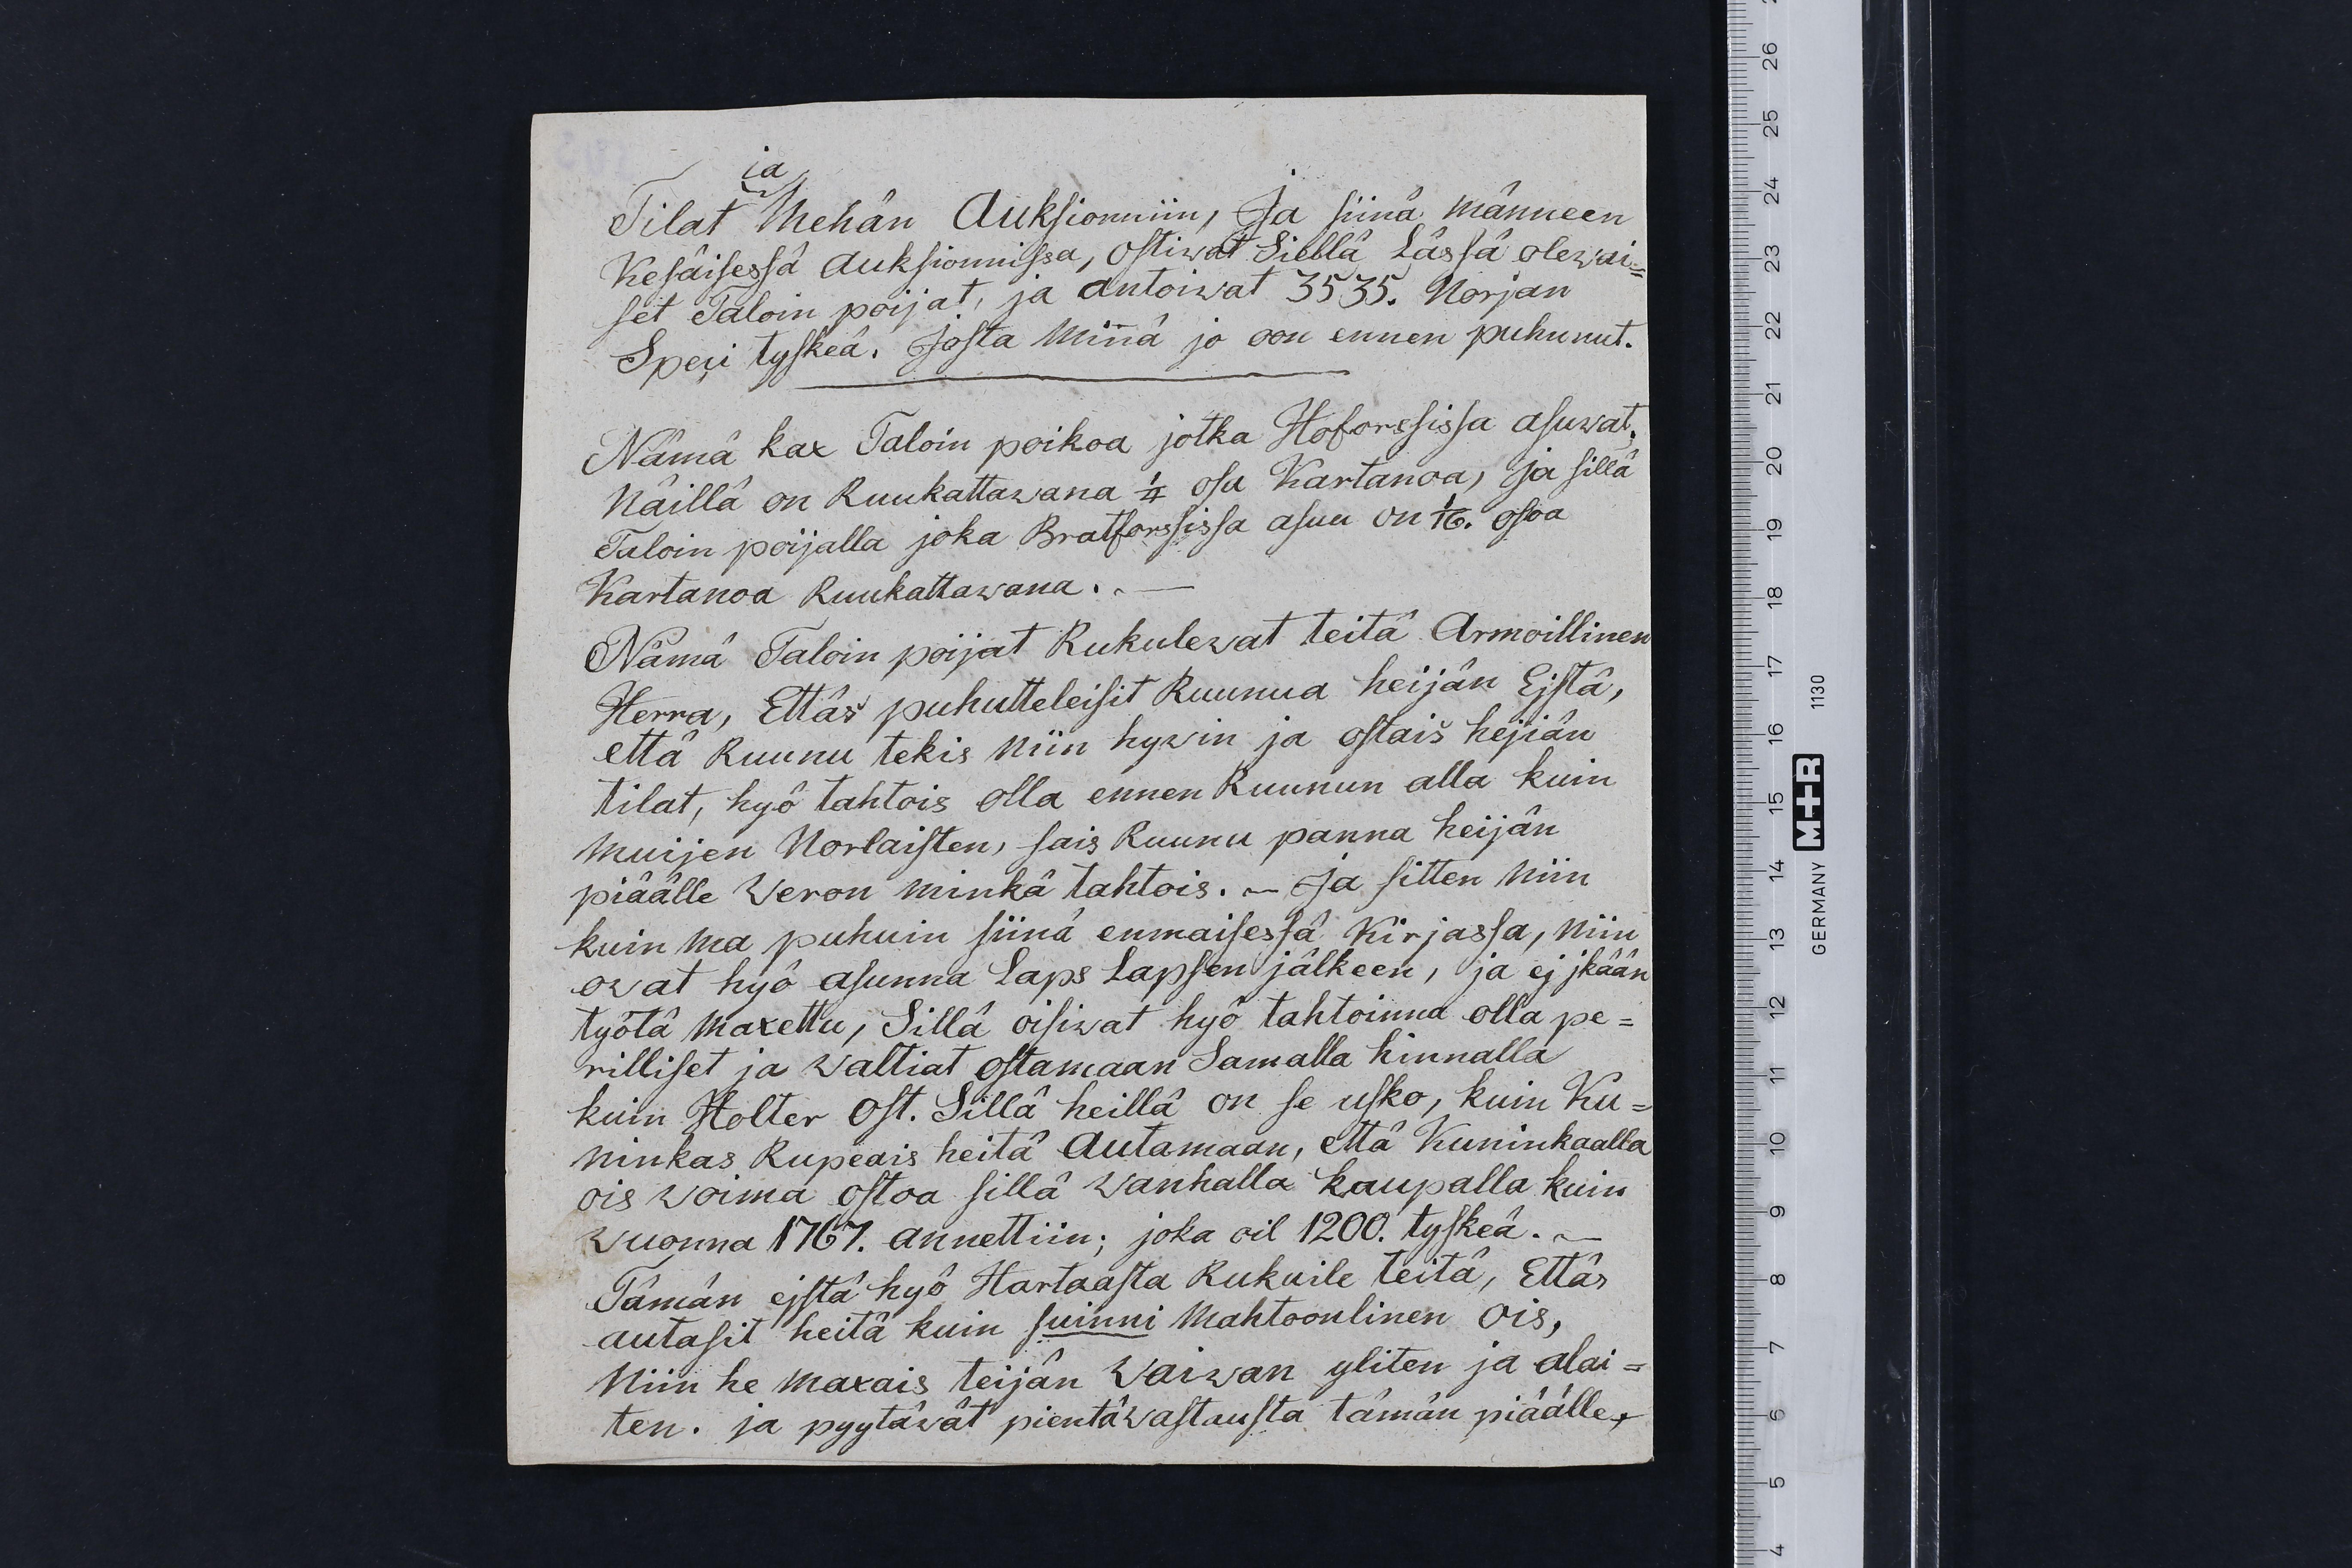 ja
Tilat Mehän Auksionniin, Ja siinä männeen
Kesäisessä Auksionnissa, ostiwat Siellä Lässä olewai=
set Taloin poijat, ja antoiwat 3535. Norjan
Speçi tyskeä. Josta Minä jo oon ennen puhunut.
Nämä kax Taloin poikoa jotka Hoforssissa asuwat,
Näillä on Ruukattawana 1/4 osa Kartanoa, ja sillä
Taloin poijalla joka Bratforssissa asuu on 1/16. osoa
Kartanoa Ruukattawana. —
Nämä Taloin poijat Rukulewat teitä Armoillinen
Herra, Ettäs puhutteleisit Ruunua heijän Ejstä,
että Ruunu tekis Niin hywin ja ostais hejiän
tilat, hyö tahtois olla ennen Ruunun alla kuin
Muijen Norlaisten, sais Ruunu panna heijän
piäälle Weron minkä tahtois. — Ja sitten Niin
kuin Ma puhuin siinä enmaisessä Kirjassa, Niin
owat hyö asunna Laps Lapsen jälkeen, ja ej jkään
työtä Maxettu, Sillä oisiwat hyö tahtoinna olla pe=
rilliset ja Waltiat ostamaan Samalla hinnalla
kuin Holter Ost. Sillä heillä on se usko, kuin Ku=
ninkas Rupeais heitä Autamaan, että Kuninkaalla
ois Woima ostoa sillä Wanhalla kaupalla kuin
Wuonna 1767. annettiin; joka oil 1200. tyskeä. —
Tämän ejstä hyö Hartaasta Rukuile teitä, Ettäs
autasit heitä kuin suinni Mahtoonlinen Ois,
Niin he Maxais teijän Waiwan yliten ja alai=
ten. ja pyytäwät pientä Wastausta tämän piäälle,
26
25
24
23
22
21
20
19
18
17
16
15
14
13
12
11
10
9
8
7
6
5
4
GERMANY M+R 1130